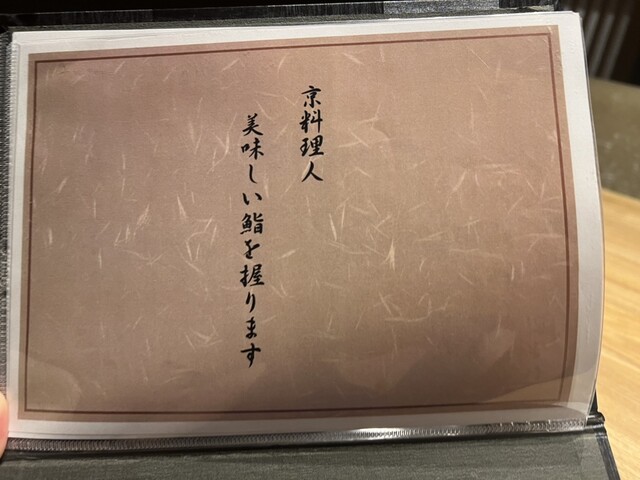 京料理人
美味しい鮨を握ります